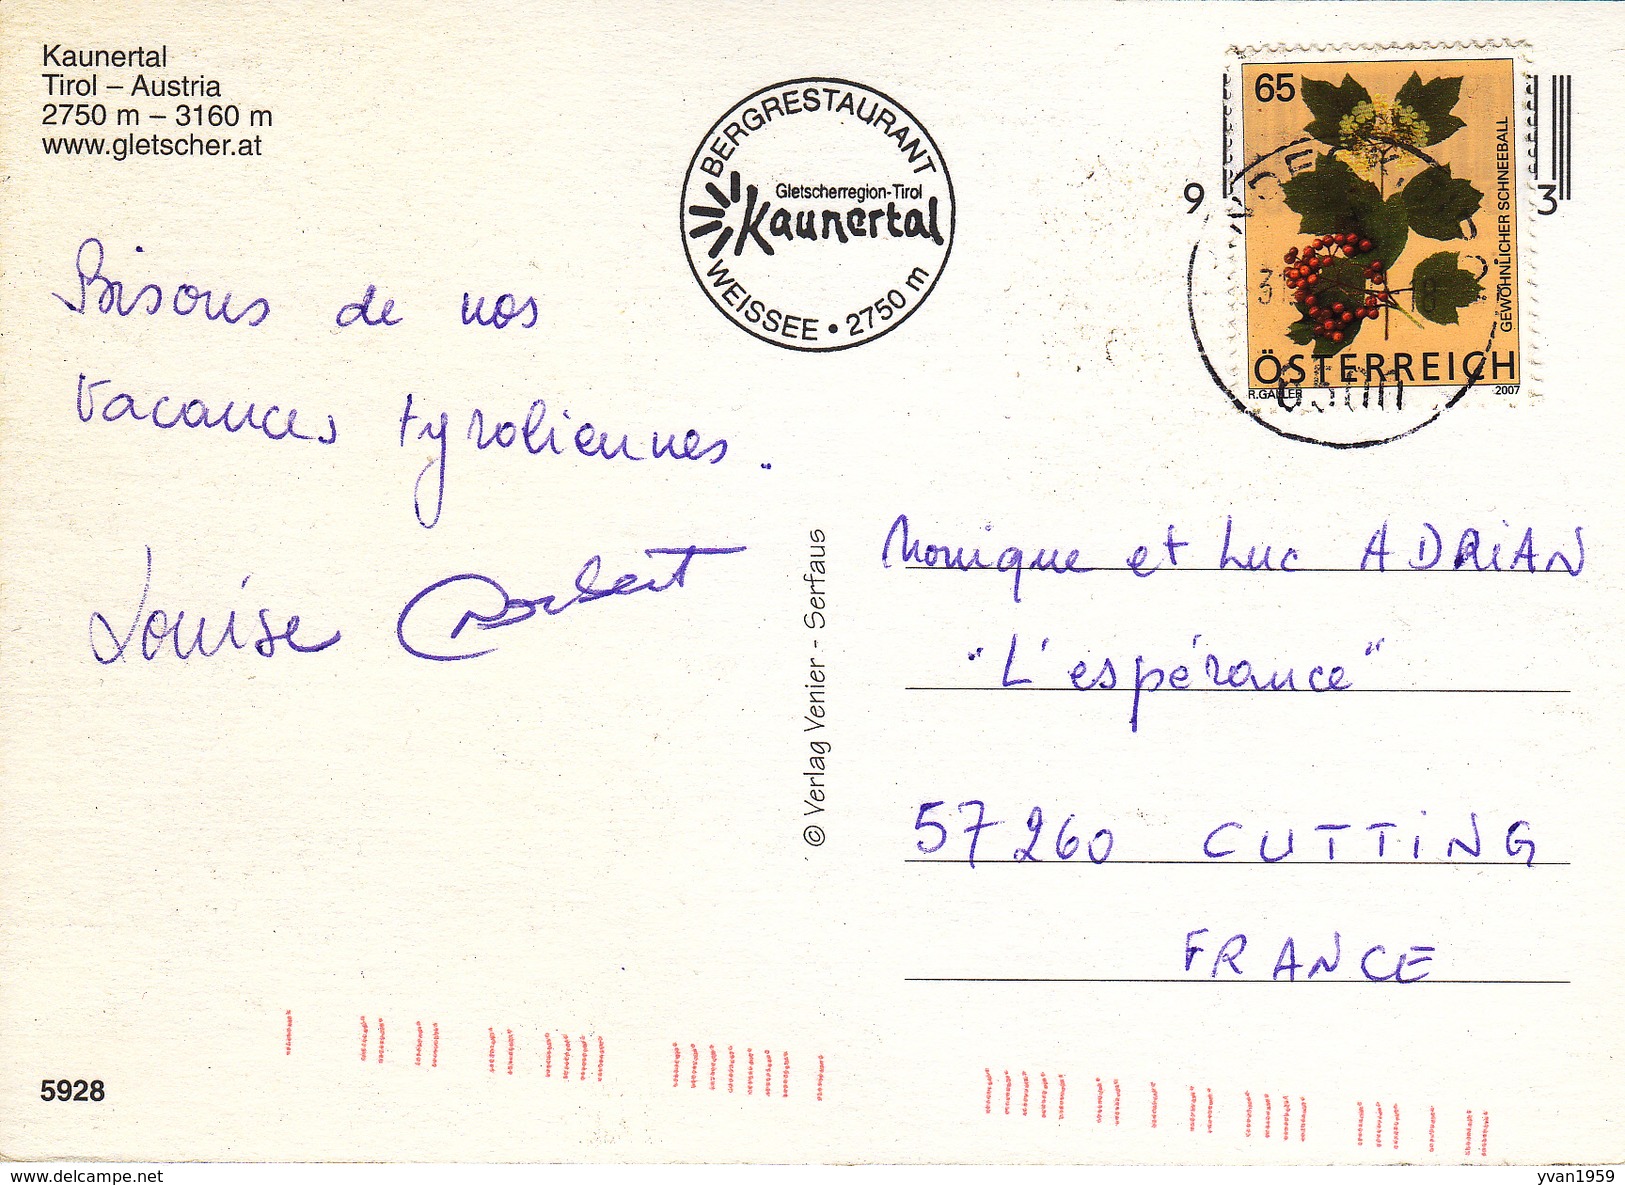 Kaunertal
Tirol – Austria
2750 m – 3160 m
www.gletscher.at
BERGRESTAURANT
Gletscherregion-Tirol
Kaunertal
WEISSEE • 2750 m
65
GEWÖHNLICHER SCHNEEBALL
ÖSTERREICH
R.GALLER 2007
9 3
6500
Bisous de nos
vacances tyroliennes.
Louise Norbert
© Verlag Venier - Serfaus
Monique et Luc ADRIAN
"L'espérance"
57260 CUTTING
FRANCE
5928
www.delcampe.net
yvan1959